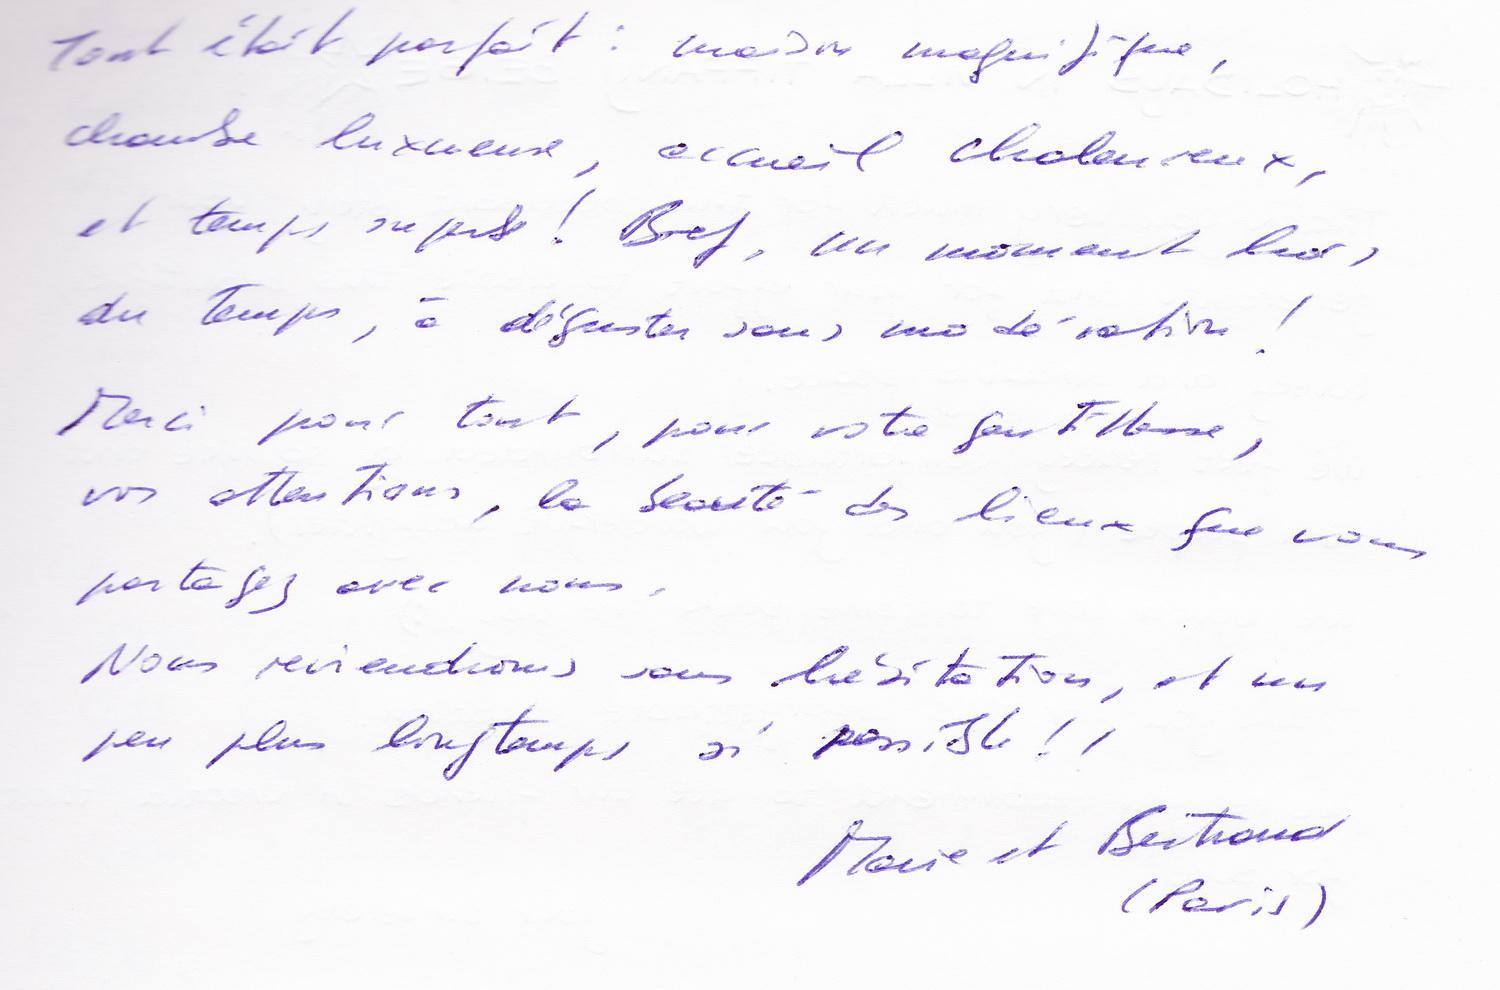 Tout était parfait : maison magnifique,
chambre luxueuse, accueil chaleureux,
et temps superbe ! Bref, un moment hors
du temps, à déguster sans modération !
Merci pour tout, pour votre gentillesse,
vos attentions, la beauté des lieux que vous
partagez avec nous.
Nous reviendrons sans hésitation, et un
peu plus longtemps si possible !!
Marie et Bertrand
(Paris)